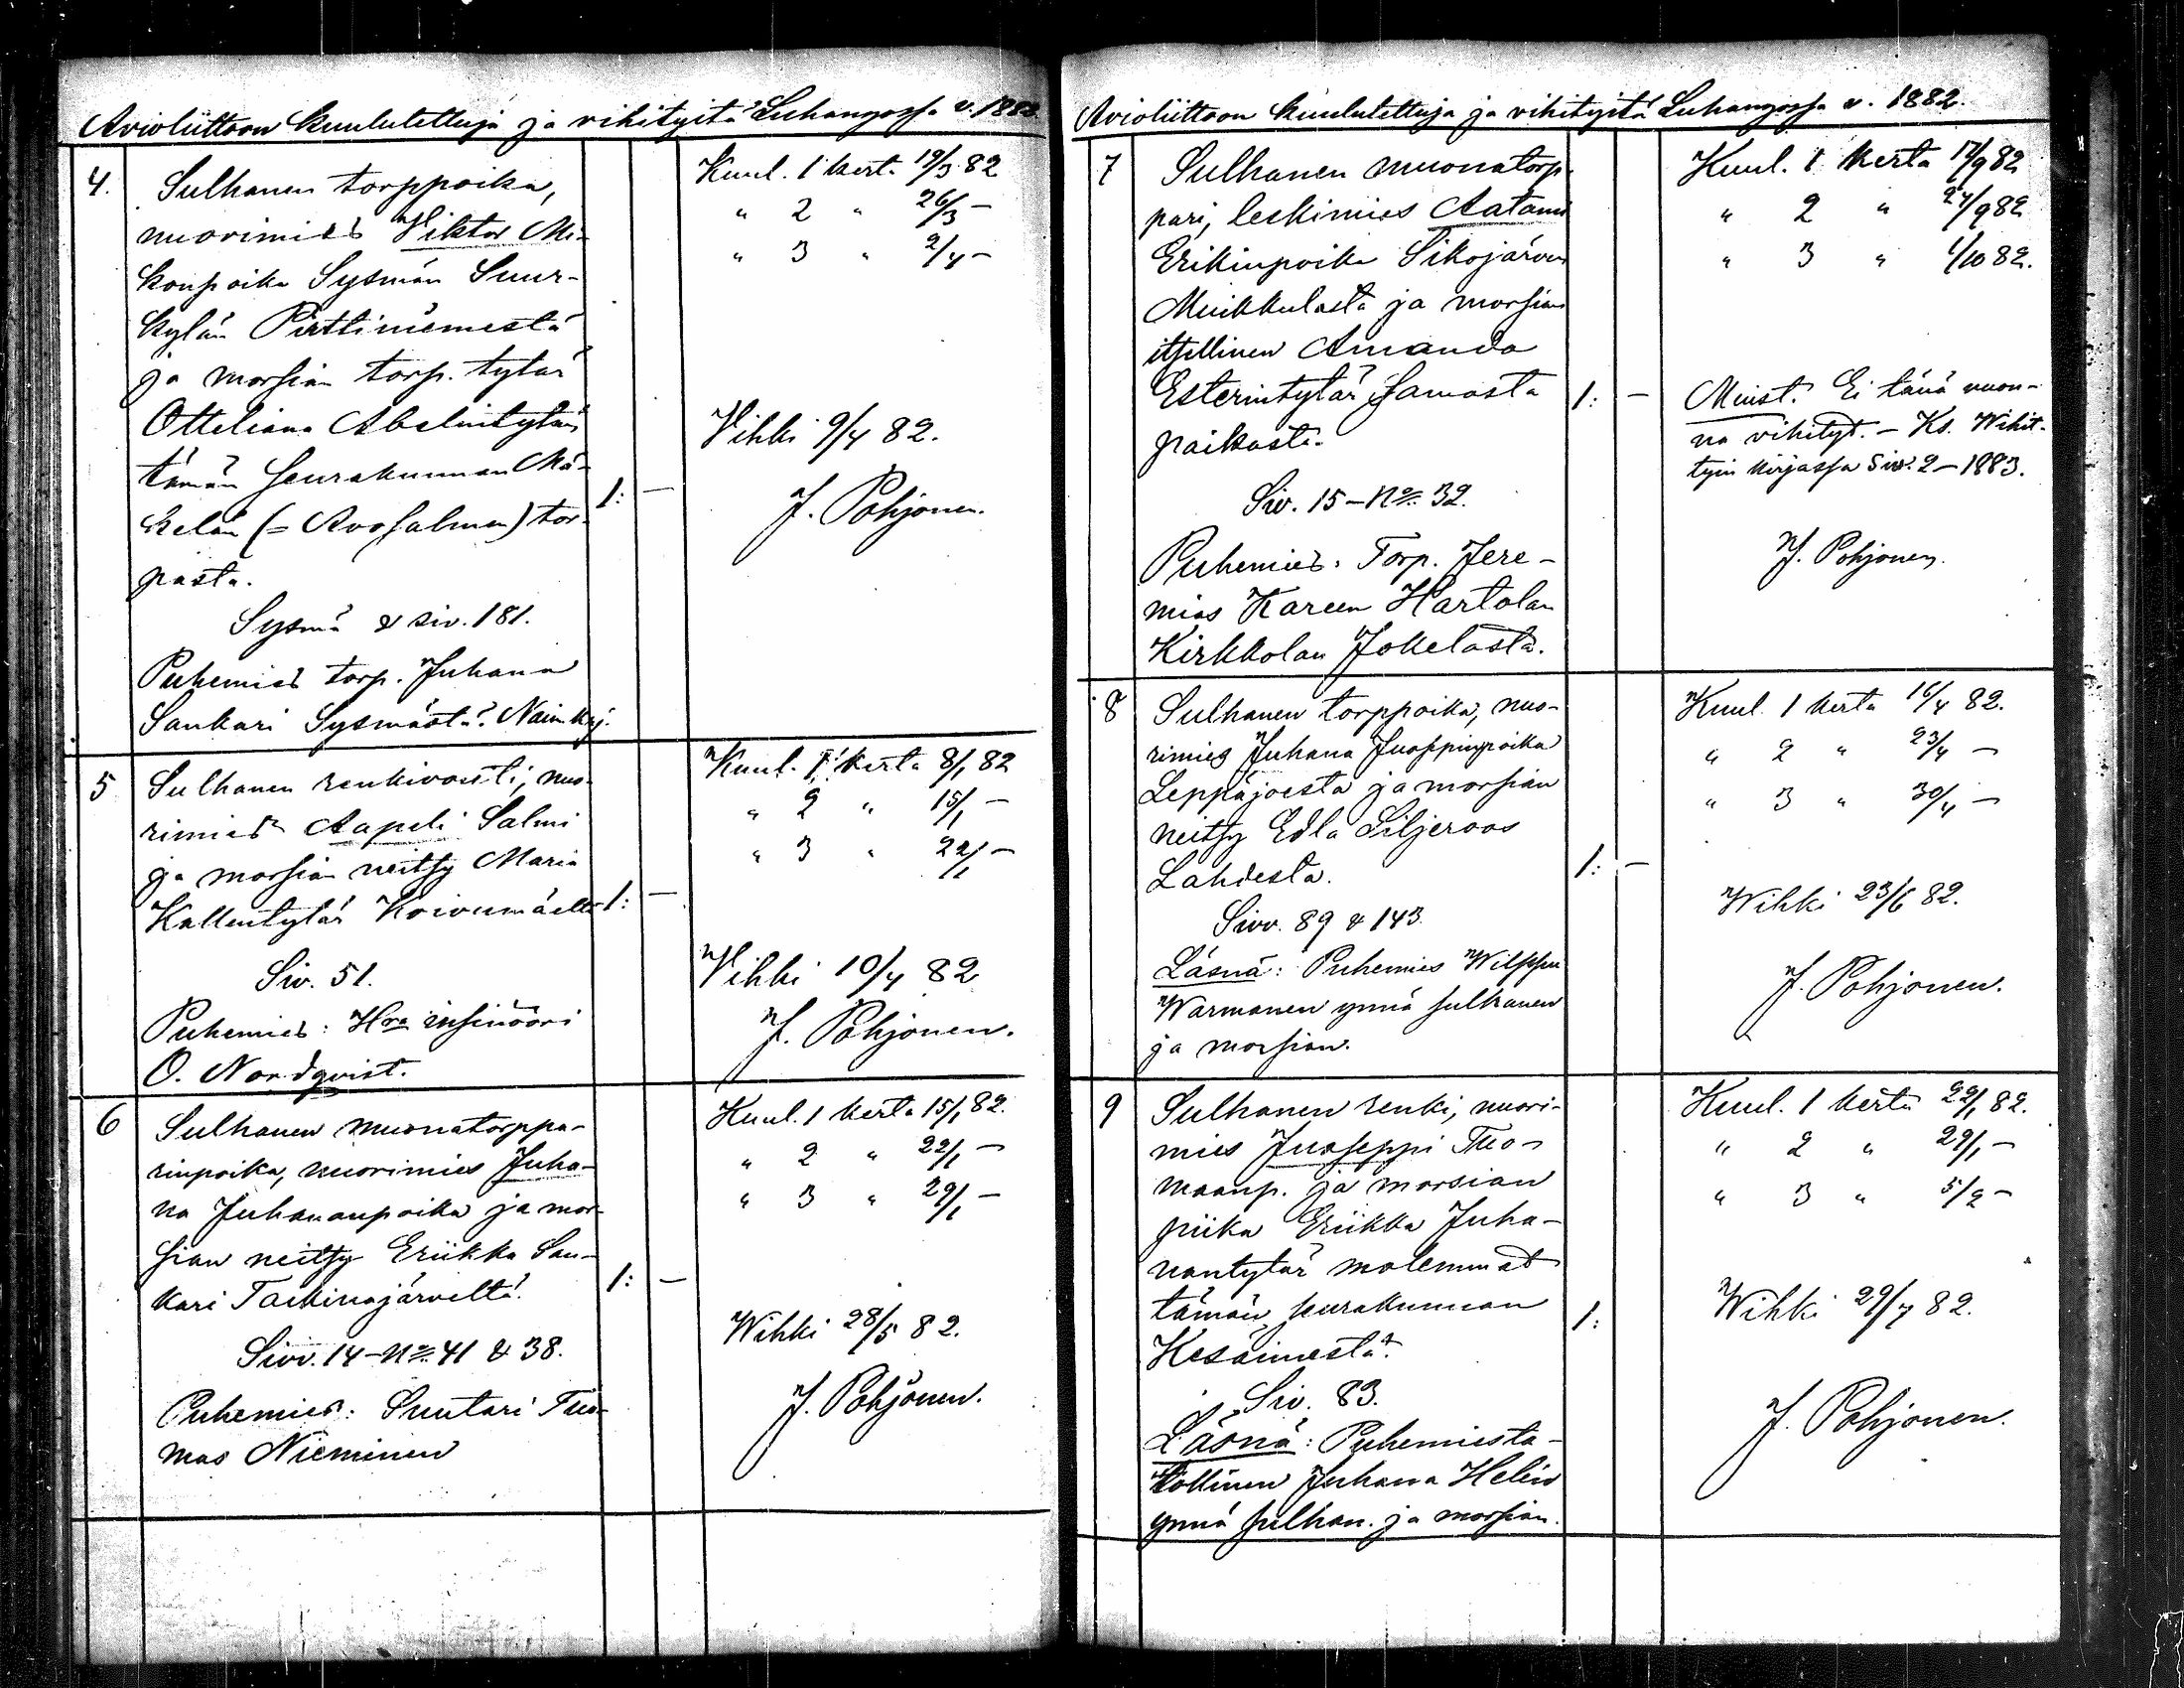 Avioliittoon kuulutettuja ja vihityitä Luhangossa v. 1882.
4. Sulhanen torppoika,
nuorimies Viktor Mi-
konpoika Sysmän Suur-
kylän Pirttiniemestä
ja morsian torp. tytär
Otteliana Abelintytär
tämän seurakunnan Mä-
kelän (= Avosalmen) tor-
pasta.
Sysmä & siv. 181.
Puhemies torp. Juhana
Sankari Sysmästä. Naim. krj.
1: —
Kuul. 1 kert. 19/3 82
" 2 " 26/3 —
" 3 " 2/4 —
Vihki 9/4 82.
J. Pohjonen.
5 Sulhanen renkivouti, nuo-
rimies Aapeli Salmi
ja morsian neitsy Maria
Kallentytär Koivumäeltä
Siv. 51.
Puhemies: Hra insinööri
O. Nordqvist.
1: —
Kuul. 1 kerta 8/1 82
" 2 " 15/1 —
" 3 " 22/1 —
Vihki 10/4 82
J. Pohjonen.
6 Sulhanen muonatorppa-
rinpoika, nuorimies Juha-
na Juhananpoika ja mor-
sian neitsy Eriikka San-
kari Tarkinajärveltä.
Sivv. 14 — No 41 & 38.
Puhemies: Suutari Tuo-
mas Nieminen
1: —
Kuul. 1 kerta 15/1 82.
" 2 " 22/1 —
" 3 " 29/1 —
Wihki 28/5 82.
J. Pohjonen.
Avioliittoon kuulutettuja ja vihityitä Luhangossa v. 1882.
7 Sulhanen muonatorp-
pari, leskimies Aatami
Erikinpoika Sikojärven
Muikkulasta ja morsian
itsellinen Amanda
Esterintytär samasta
paikasta.
Siv. 15 — No 32.
Puhemies: Torp. Jere-
mias Kareen Hartolan
Kirkkolan Jokelasta.
1: —
Kuul. 1 kerta 17/9 82
" 2 " 24/9 82
" 3 " 1/10 82.
Muist. Ei tänä vuon-
na vihityt. — Ks. Wihit-
tyin kirjassa siv. 2 — 1883.
J. Pohjonen.
8 Sulhanen torppoika, nuo-
rimies Juhana Juosppinpoika
Leppäjoesta ja morsian
neitsy Edla Liljeroos
Lahdesta.
Sivv. 89 & 143.
Läsnä: Puhemies Wilppu
Warmanen ynnä sulhanen
ja morsian.
1: —
Kuul. 1 kerta 16/4 82.
" 2 " 23/4 —
" 3 " 30/4 —
Wihki 23/6 82.
J. Pohjonen.
9 Sulhanen renki, nuori-
mies Juoseppi Tuo-
maanp. ja morsian
piika Eriikka Juha-
nantytär molemmat
tämän seurakunnan
Kesäimestä.
Siv. 83.
Läsnä: Puhemiesta-
Juhana Helin
ynnä sulhan. ja morsian.
1:
Kuul. 1 kerta 22/1 82.
" 2 " 29/1 —
" 3 " 5/2 —
Wihki 29/7 82.
J. Pohjonen.